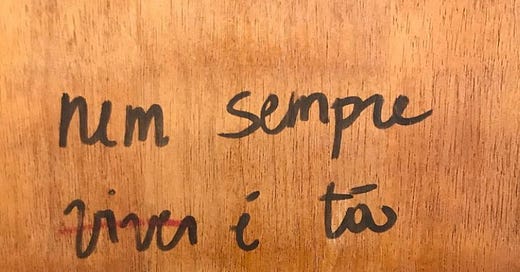 nem sempre
viver é tão